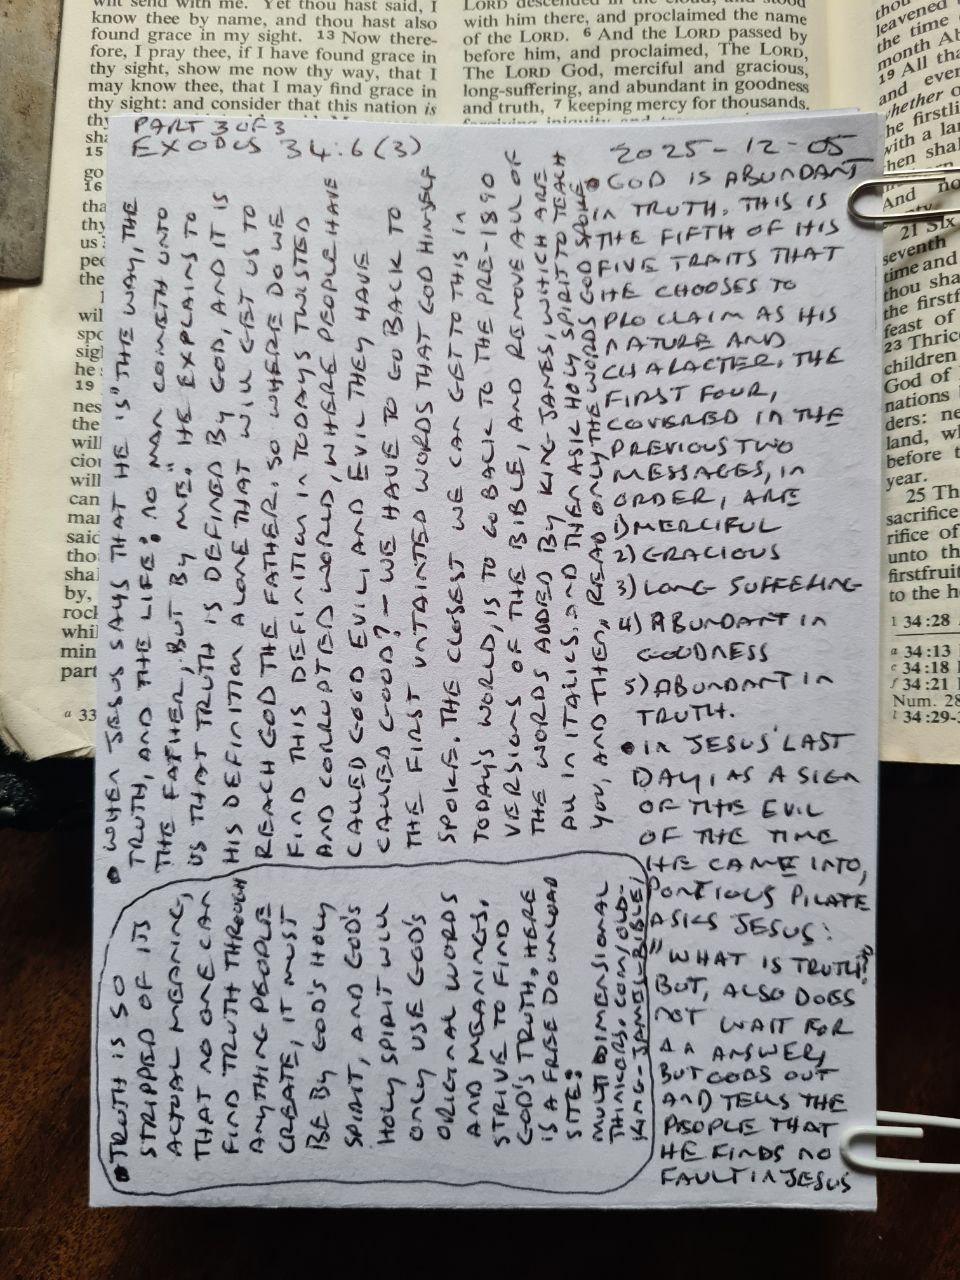 wilt send with me. Yet thou hast said, I
know thee by name, and thou hast also
found grace in my sight. 13 Now there-
fore, I pray thee, if I have found grace in
thy sight, show me now thy way, that I
may know thee, that I may find grace in
thy sight: and consider that this nation is
thy
sha
15
go
16
tha
thy
us
peo
the
wil
spo
sig
he
19
nes
the
will
cio
will
can
mar
said
tho
shal
by,
rock
whil
min
part
a 33
LORD descended in the cloud, and stood
with him there, and proclaimed the name
of the LORD. 6 And the LORD passed by
before him, and proclaimed, The LORD,
The LORD God, merciful and gracious,
long-suffering, and abundant in goodness
and truth, 7 keeping mercy for thousands,
thou
leavened
the time
month Ab
19 All tha
and ever
whether o
he firstli
with a lar
hen shal
And no
21 Six
seventh
time and
thou sha
the firstf
feast of
23 Thric
children
God of
nations
ders: ne
land, w
before t
year.
25 Th
sacrifice
rifice of
unto th
firstfruit
to the h
1 34:28
a 34:13
c 34:18
f 34:21
Num. 28
l 34:29-3
PART 3 OF 3
EXODUS 34:6 (3)
2025-12-05
• GOD IS ABUNDANT
IN TRUTH. THIS IS
THE FIFTH OF HIS
FIVE TRAITS THAT
HE CHOOSES TO
PROCLAIM AS HIS
NATURE AND
CHARACTER. THE
FIRST FOUR,
COVERED IN THE
PREVIOUS TWO
MESSAGES, IN
ORDER, ARE
1) MERCIFUL
2) GRACIOUS
3) LONG SUFFERING
4) ABUNDANT IN
GOODNESS
5) ABUNDANT IN
TRUTH.
• IN JESUS' LAST
DAY, AS A SIGN
OF THE EVIL
OF THE TIME
HE CAME INTO,
PONTIOUS PILATE
ASKS JESUS:
"WHAT IS TRUTH?"
BUT, ALSO DOES
NOT WAIT FOR
AN ANSWER,
BUT GOES OUT
AND TELLS THE
PEOPLE THAT
HE FINDS NO
FAULT IN JESUS
• WHEN JESUS SAYS THAT HE IS "THE WAY, THE
TRUTH, AND THE LIFE: NO MAN COMETH UNTO
THE FATHER, BUT BY ME." HE EXPLAINS TO
US THAT TRUTH IS DEFINED BY GOD, AND IT IS
HIS DEFINITION ALONE THAT WILL GET US TO
REACH GOD THE FATHER. SO WHERE DO WE
FIND THIS DEFINITION IN TODAYS TWISTED
AND CORRUPTED WORLD, WHERE PEOPLE HAVE
CALLED GOOD EVIL, AND EVIL THEY HAVE
CALLED GOOD? - WE HAVE TO GO BACK TO
THE FIRST UNTAINTED WORDS THAT GOD HIMSELF
SPOKE. THE CLOSEST WE CAN GET TO THIS IN
TODAY'S WORLD, IS TO GO BACK TO THE PRE-1890
VERSIONS OF THE BIBLE, AND REMOVE ALL OF
THE WORDS ADDED BY KING JAMES, WHICH ARE
ALL IN ITALICS. AND THEN ASK HOLY SPIRIT TO TEACH
YOU, AND THEN, READ ONLY THE WORDS GOD SPOKE.
• TRUTH IS SO
STRIPPED OF ITS
ACTUAL MEANING,
THAT NO ONE CAN
FIND TRUTH THROUGH
ANYTHING PEOPLE
CREATE, IT MUST
BE BY GOD'S HOLY
SPIRIT, AND GOD'S
HOLY SPIRIT WILL
ONLY USE GOD'S
ORIGINAL WORDS
AND MEANINGS.
STRIVE TO FIND
GOD'S TRUTH. HERE
IS A FREE DOWNLOAD
SITE:
MULTIDIMENSIONAL
THINKERS.COM/OLD-
KING-JAMES-BIBLE/